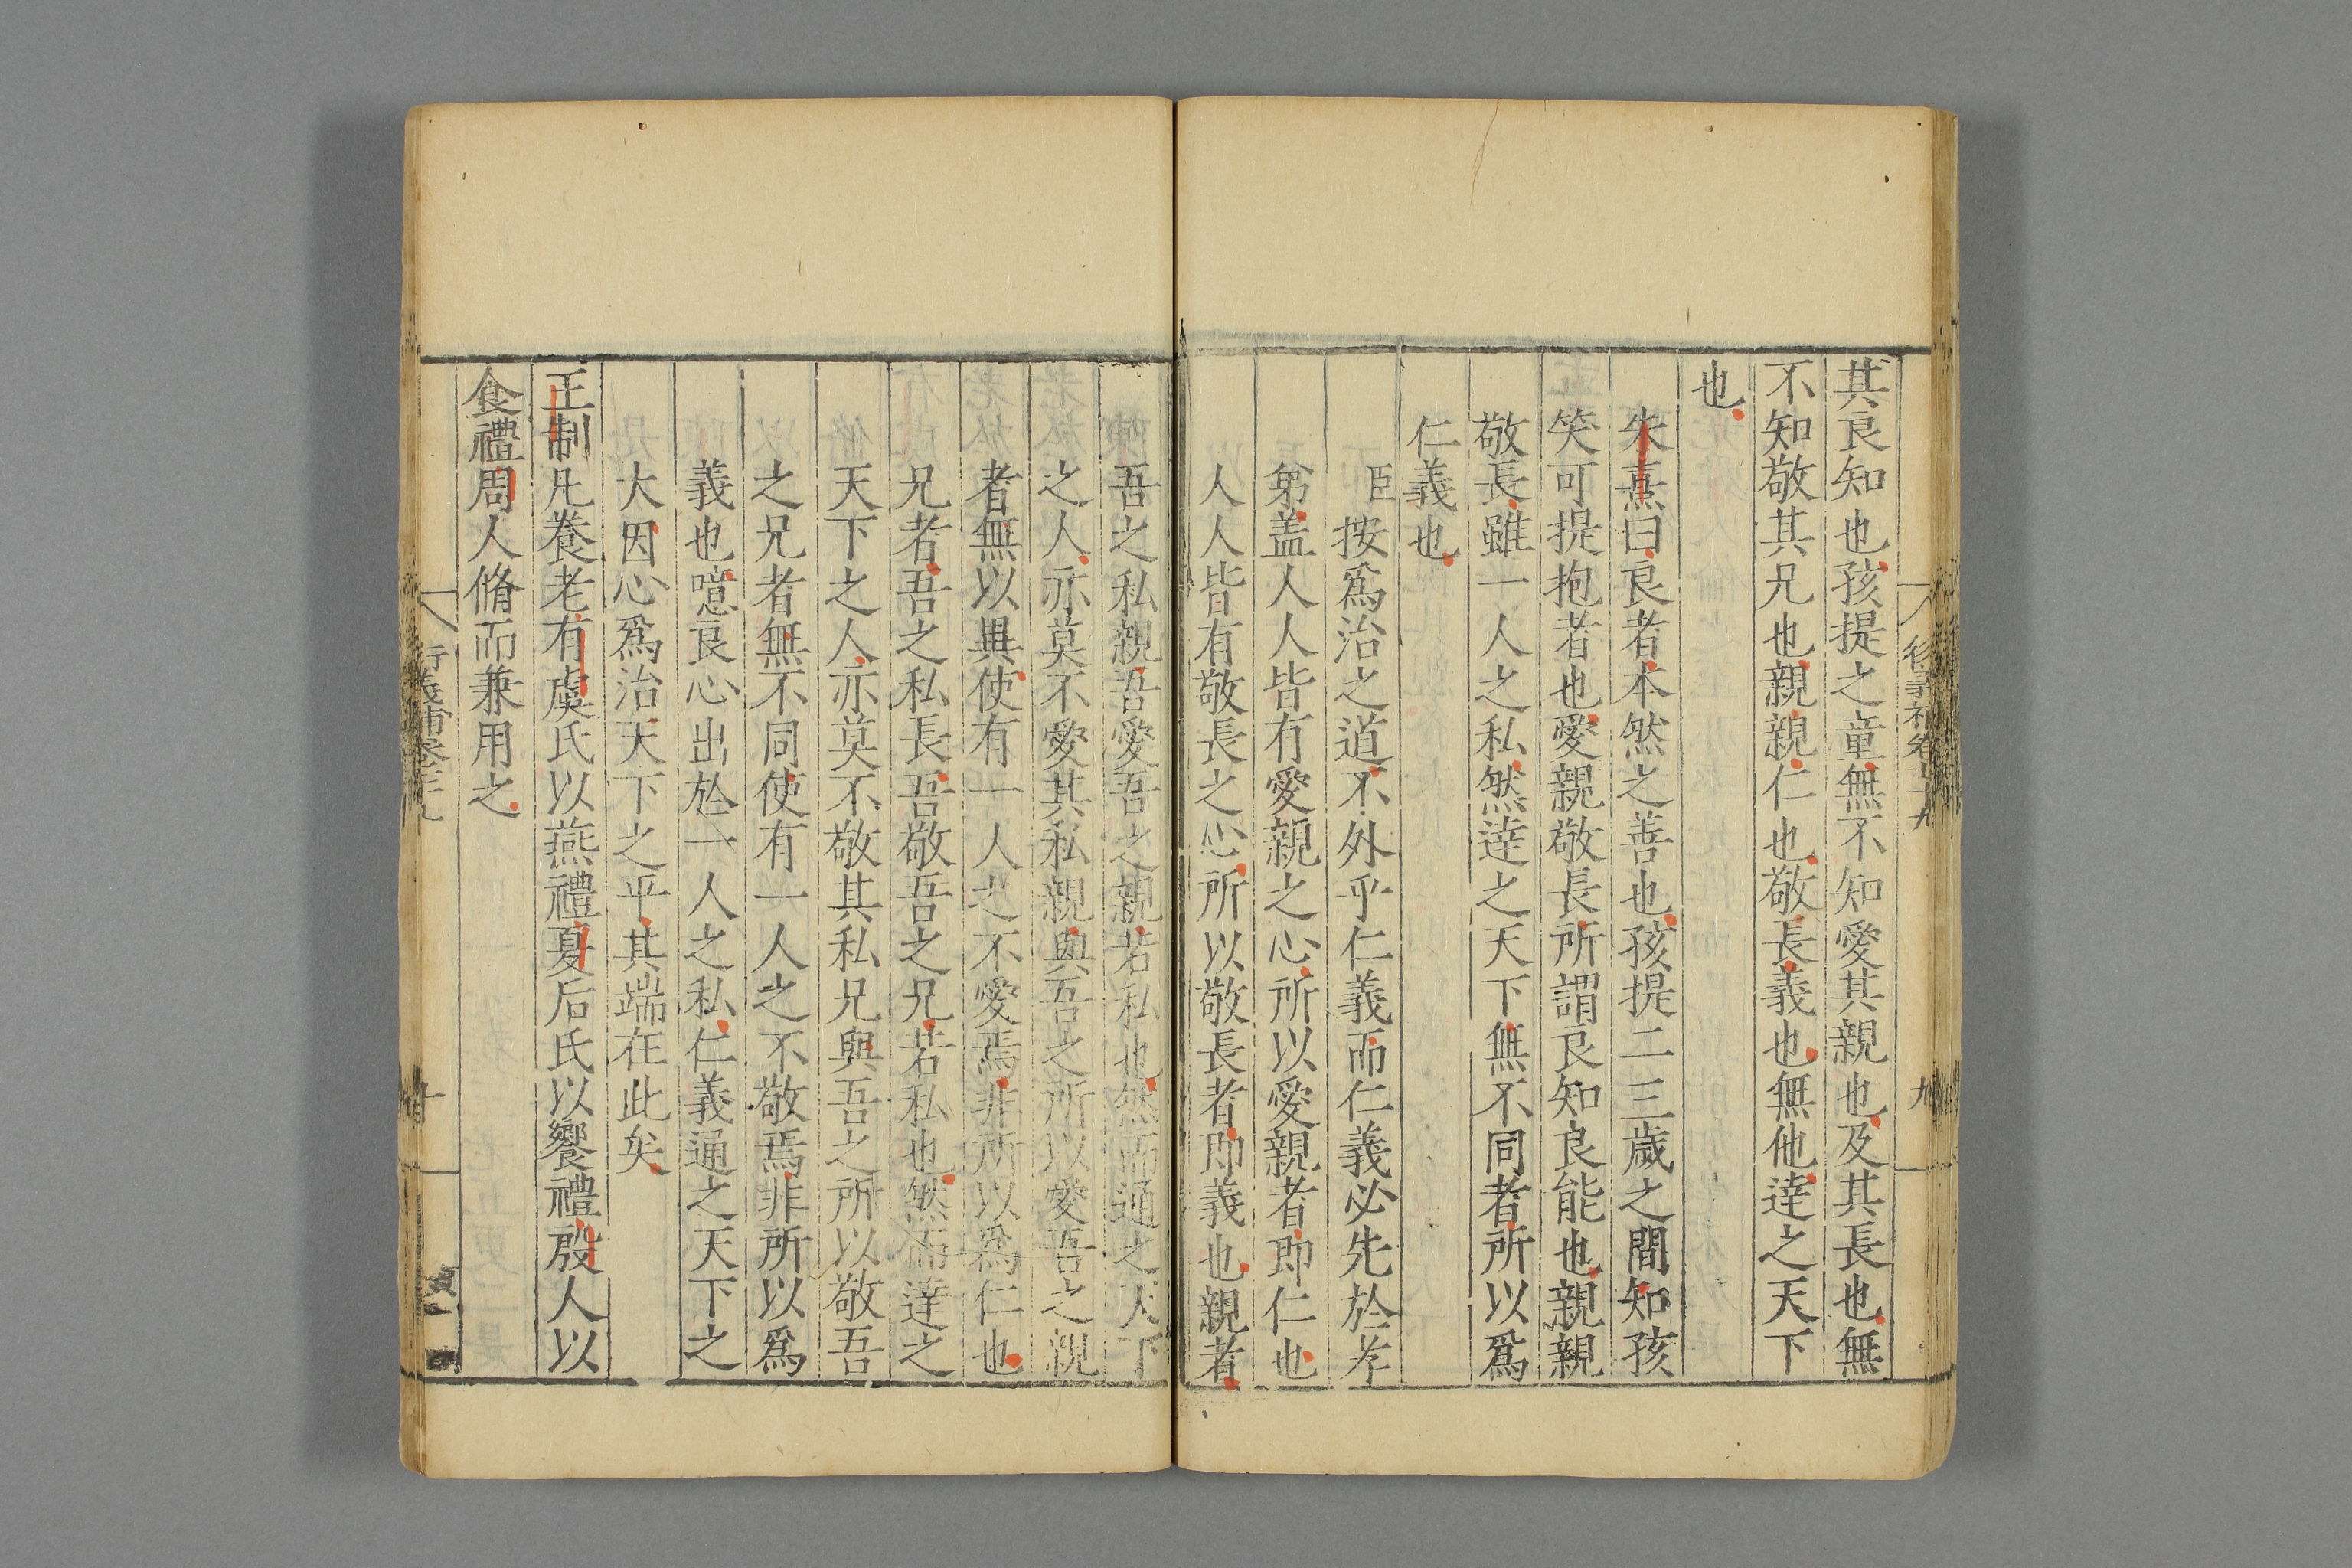 其良知也孩提之童無不知愛其親也及其長也無
不知敬其兄也親親仁也敬長義也無他達之天下
也
朱熹曰良者本然之善也孩提二三歲之間知孩
笑可提抱者也愛親敬長所謂良知良能也親親
敬長雖一人之私然達之天下無不同者所以爲
仁義也
臣按爲治之道不外乎仁義而仁義必先於孝
弟盖人人皆有愛親之心所以愛親者即仁也
人人皆有敬長之心所以敬長者即義也親者
吾之私親吾愛吾之親若私也然而通之天下
之人亦莫不愛其私親與吾之所以愛吾之親
者無以異使有一人之不愛焉非所以爲仁也
兄者吾之私長吾敬吾之兄若私也然而達之
天下之人亦莫不敬其私兄與吾之所以敬吾
之兄者無不同使有一人之不敬焉非所以爲
義也噫良心出於一人之私仁義通之天下之
大因心爲治天下之平其端在此矣
王制凡養老有虞氏以燕禮夏后氏以饗禮殷人以
食禮周人脩而兼用之
十